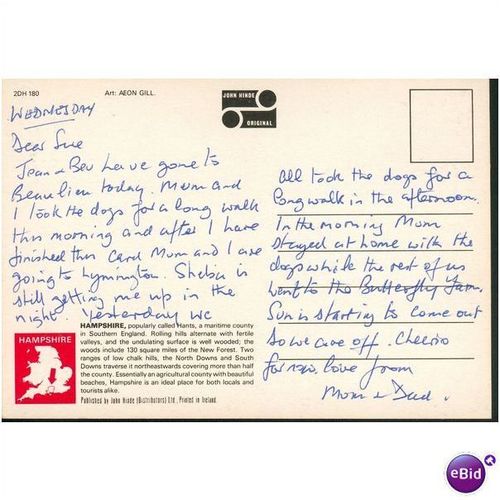 2DH 180
Art: AEON GILL.
JOHN HINDE
ORIGINAL
WEDNESDAY
Dear Sue
Joan & Bev have gone to
Beaulieu today. Mum and
I took the dogs for a long walk
this morning and after I have
finished this Card Mum and I are
going to Lymington. Sheba is
still getting me up in the
night. Yesterday we
all took the dogs for a
long walk in the afternoon.
In the morning Mum
stayed at home with the
dogs while the rest of us
went to the Butterfly Farm.
Sun is starting to come out
so we are off. Cheerio
for now, love from
Mum & Dad.
HAMPSHIRE
HAMPSHIRE, popularly called Hants, a maritime county
in Southern England. Rolling hills alternate with fertile
valleys, and the undulating surface is well wooded; the
woods include 130 square miles of the New Forest. Two
ranges of low chalk hills, the North Downs and South
Downs traverse it northeastwards covering more than half
the county. Essentially an agricultural county with beautiful
beaches, Hampshire is an ideal place for both locals and
tourists alike.
Published by John Hinde (Distributors) Ltd., Printed in Ireland.
eBid